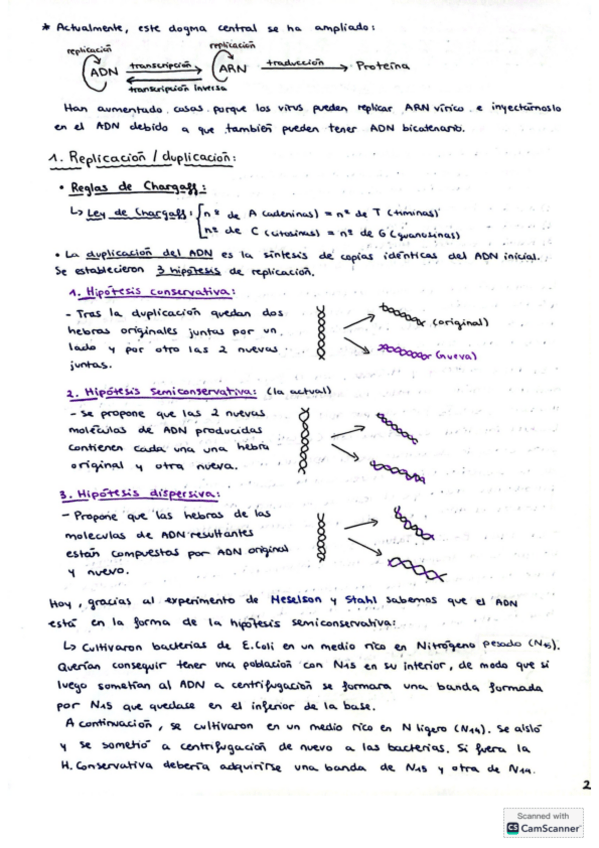 * Actualmente, este dogma central se ha ampliado:
replicación replicación
ADN transcripción ARN traducción Proteína
transcripción inversa
Han aumentado cosas porque los virus pueden replicar ARN vírico e inyectárnoslo
en el ADN debido a que también pueden tener ADN bicatenario.
1. Replicación / duplicación:
• Reglas de Chargaff:
↳ Ley de Chargaff: nº de A (adeninas) = nº de T (timinas)
nº de C (citosinas) = nº de G (guanosinas)
• La duplicación del ADN es la síntesis de copias idénticas del ADN inicial.
Se establecieron 3 hipótesis de replicación.
1. Hipótesis conservativa:
- Tras la duplicación quedan dos
hebras originales juntas por un
lado y por otro las 2 nuevas
juntas.
(original)
(nueva)
2. Hipótesis semiconservativa: (la actual)
- Se propone que las 2 nuevas
moléculas de ADN producidas
contienen cada una una hebra
original y otra nueva.
3. Hipótesis dispersiva:
- Propone que las hebras de las
moleculas de ADN resultantes
están compuestas por ADN original
y nuevo.
Hoy, gracias al experimento de Meselson y Stahl sabemos que el ADN
está en la forma de la hipótesis semiconservativa:
↳ Cultivaron bacterias de E.Coli en un medio rico en Nitrógeno pesado (N15).
Querían conseguir tener una población con N15 en su interior, de modo que si
luego sometían al ADN a centrifugación se formara una banda formada
por N15 que quedase en el inferior de la base.
A continuación, se cultivaron en un medio rico en N ligero (N14). Se aisló
y se sometió a centrifugación de nuevo a las bacterias. Si fuera la
H. Conservativa debería adquirirse una banda de N15 y otra de N14.
2
Scanned with
CS CamScanner